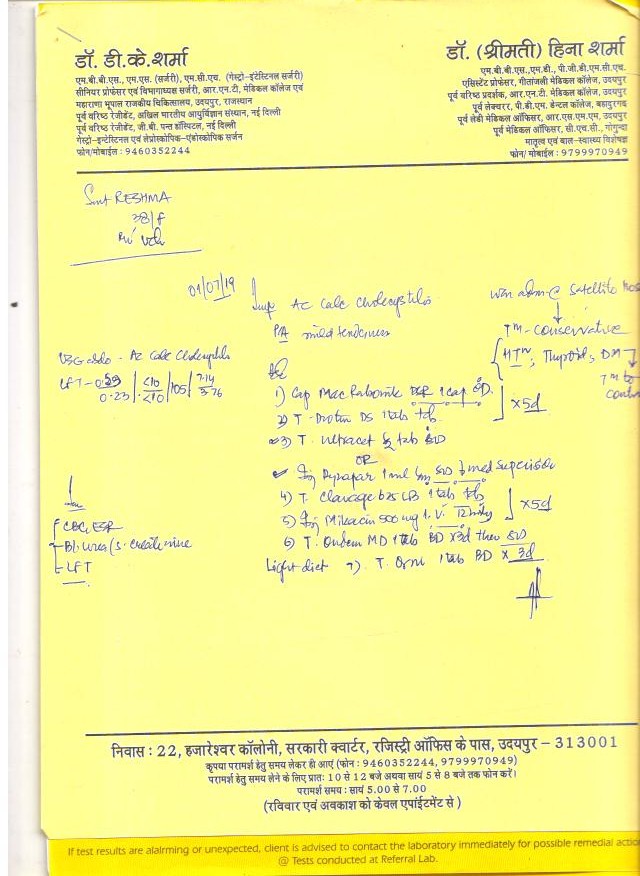 डॉ. डी.के.शर्मा
एम.बी.बी.एस., एम.एस. (सर्जरी), एम.सी.एच. (गेस्ट्रो-इंटेस्टिनल सर्जरी)
सीनियर प्रोफेसर एवं विभागाध्यक्ष सर्जरी, आर.एन.टी. मेडिकल कॉलेज एवं
महाराणा भूपाल राजकीय चिकित्सालय, उदयपुर, राजस्थान
पूर्व वरिष्ठ रेजीडेंट, अखिल भारतीय आयुर्विज्ञान संस्थान, नई दिल्ली
पूर्व वरिष्ठ रेजीडेंट, जी.बी. पन्त हॉस्पिटल, नई दिल्ली
गेस्ट्रो-इन्टेस्टिनल एवं लेप्रोस्कोपिक-एंडोस्कोपिक सर्जन
फोन/मोबाईल : 9460352244
डॉ. (श्रीमती) हिना शर्मा
एम.बी.बी.एस.,एम.डी., पी.जी.डी.एम.सी.एच.
एसिस्टेंट प्रोफेसर, गीतांजली मेडिकल कॉलेज, उदयपुर
पूर्व वरिष्ठ प्रदर्शक, आर.एन.टी. मेडिकल कॉलेज, उदयपुर
पूर्व लेक्चरर, पी.डी.एम. डेन्टल कॉलेज, बहादुरगढ़
पूर्व लेडी मेडिकल ऑफिसर, आर.एस.एम.एम, उदयपुर
पूर्व मेडिकल ऑफिसर, सी.एच.सी., गोगुन्दा
मातृत्व एवं बाल-स्वास्थ्य विशेषज्ञ
फोन/ मोबाईल : 9799970949
Smt RESHMA
38/f
01/07/19
Imp Ac Calc Cholecystitis
PA mild tenderness
Satellite Hos
Tm- Conservative
HTN, Thyroid, DM
Tm to
contin
USG abdo - Ac Calc Cholecystitis
LFT - 0.53
0.23 | <10 <10 | 105 | 7.14 3.76
1) Cap Mac Rabonik DSR 1 cap OD
2) T. DS 1 tab tds
x5d
3) T. Ultracet ½ tab SOS
OR
Inj Dynapar 1 ml Im SOS med supervision
4) T. Clavage 625 LB 1 tab tds
5) Inj Mikacin 500 mg I.V. 12 hrly
x5d
6) T. Ondem MD 1 tab BD x3d then SOS
Light diet 7) T. Orni 1 tab BD x 3d
CBC, ESR
Bl. Urea / S. Creatinine
LFT
निवास : 22, हजारेश्वर कॉलोनी, सरकारी क्वार्टर, रजिस्ट्री ऑफिस के पास, उदयपुर - 313001
कृपया परामर्श हेतु समय लेकर ही आएं (फोन : 9460352244, 9799970949)
परामर्श हेतु समय लेने के लिए प्रातः 10 से 12 बजे अथवा सायं 5 से 8 बजे तक फोन करें।
परामर्श समय : सायं 5.00 से 7.00
(रविवार एवं अवकाश को केवल एपांईटमेंट से )
If test results are alalrming or unexpected, client is advised to contact the laboratory immediately for possible remedial actio
@ Tests conducted at Referral Lab.